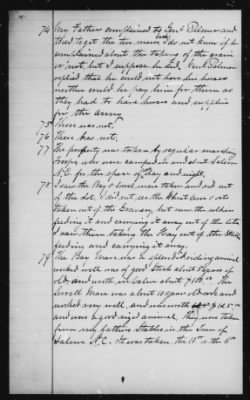 74 My Father complained to Genl Palmer and
tried to get the two mares back, do not know if he
complained about the taking of the grain
or not, but I suppose he did, Genl Palmer
replied that he could not have his horses
neither could he pay him for them as
they had to have horses and supplies
for the army.
75 There was not,
76 There has not,
77 The property was taken by regular marching
troops who were camped in and about Salem
N.C. for the space of day and night,
78 I saw the Bay & Sorrel mare taken and led out
of the lot, I did not see the wheat corn & oats
taken out of the Granary but saw the soldiers
feeding it and carrying it away out of the lots
I saw them taking the Hay out of the
feeding and carrying it away.
79 The Bay Mare was a splendid riding animal
worked well was of good stock about 7 years of
old, and worth in Salem about
Sorrell Mare was about 10 years old and
worked very well, and was worth
and was a good sized animal, they were taken
from my fathers Stables in the Town of
Salem N.C. It was taken the 10th or the 11th